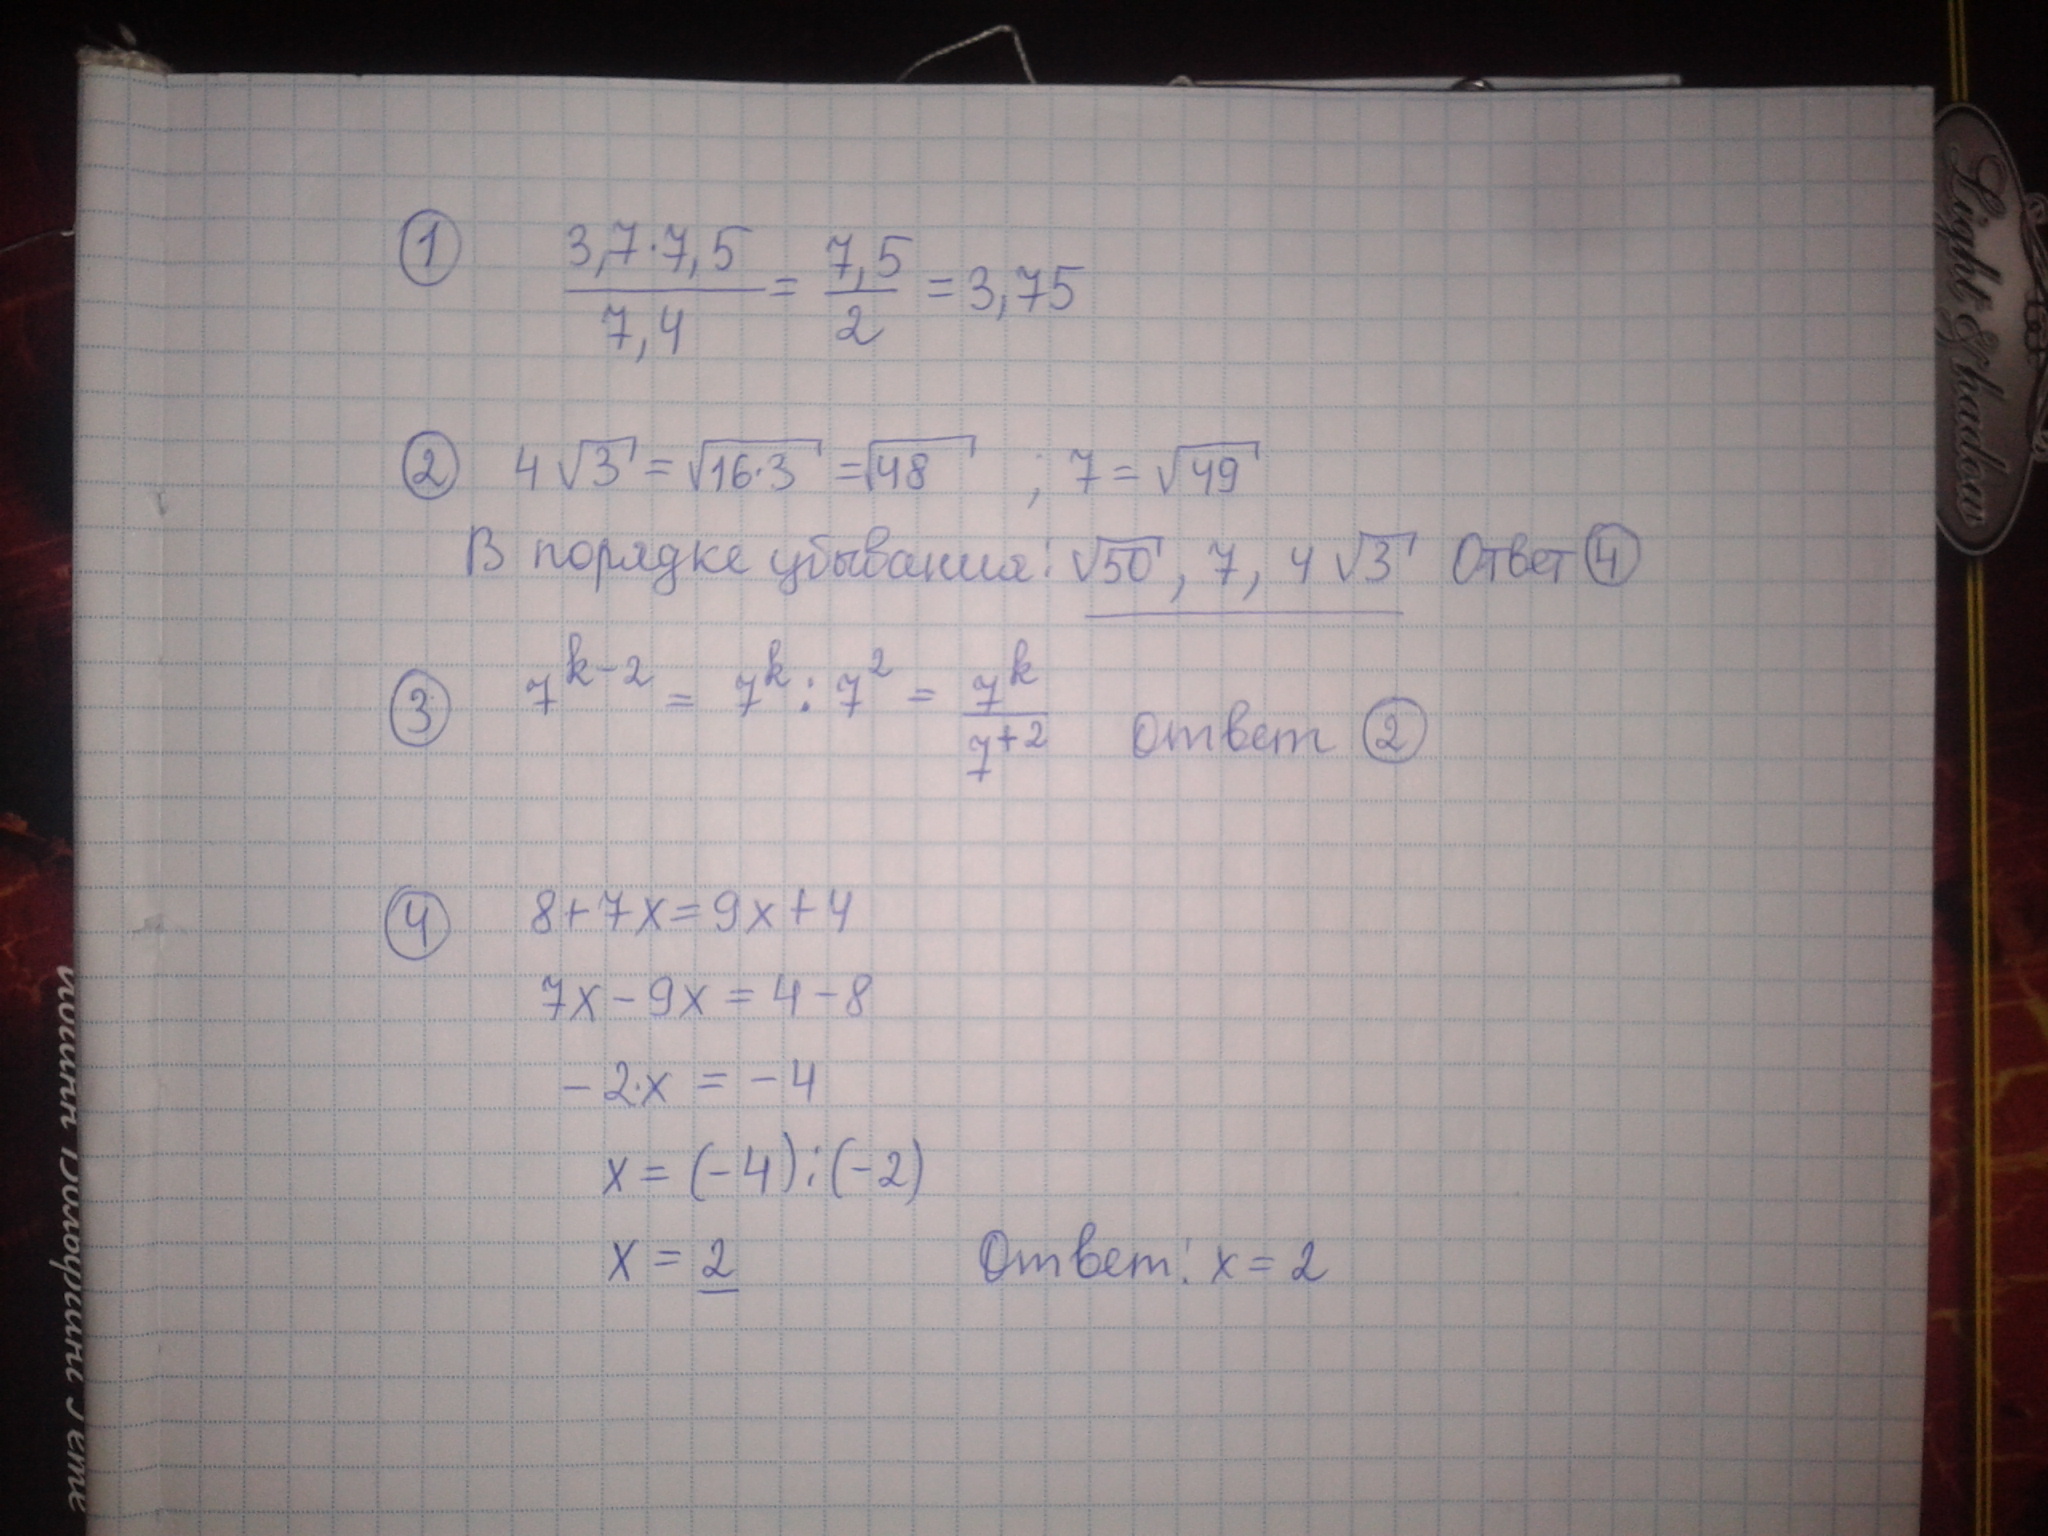 ① 3,7·7,5 / 7,4 = 7,5 / 2 = 3,75
② 4√3 = √16·3 = √48 ; 7 = √49
В порядке убывания: √50, 7, 4√3 Ответ ④
③ 7^(k-2) = 7^k : 7^2 = 7^k / 7^(+2) Ответ ②
④ 8+7x=9x+4
7x-9x=4-8
-2·x = -4
x=(-4):(-2)
x=2 Ответ: x=2
Light & Shadow